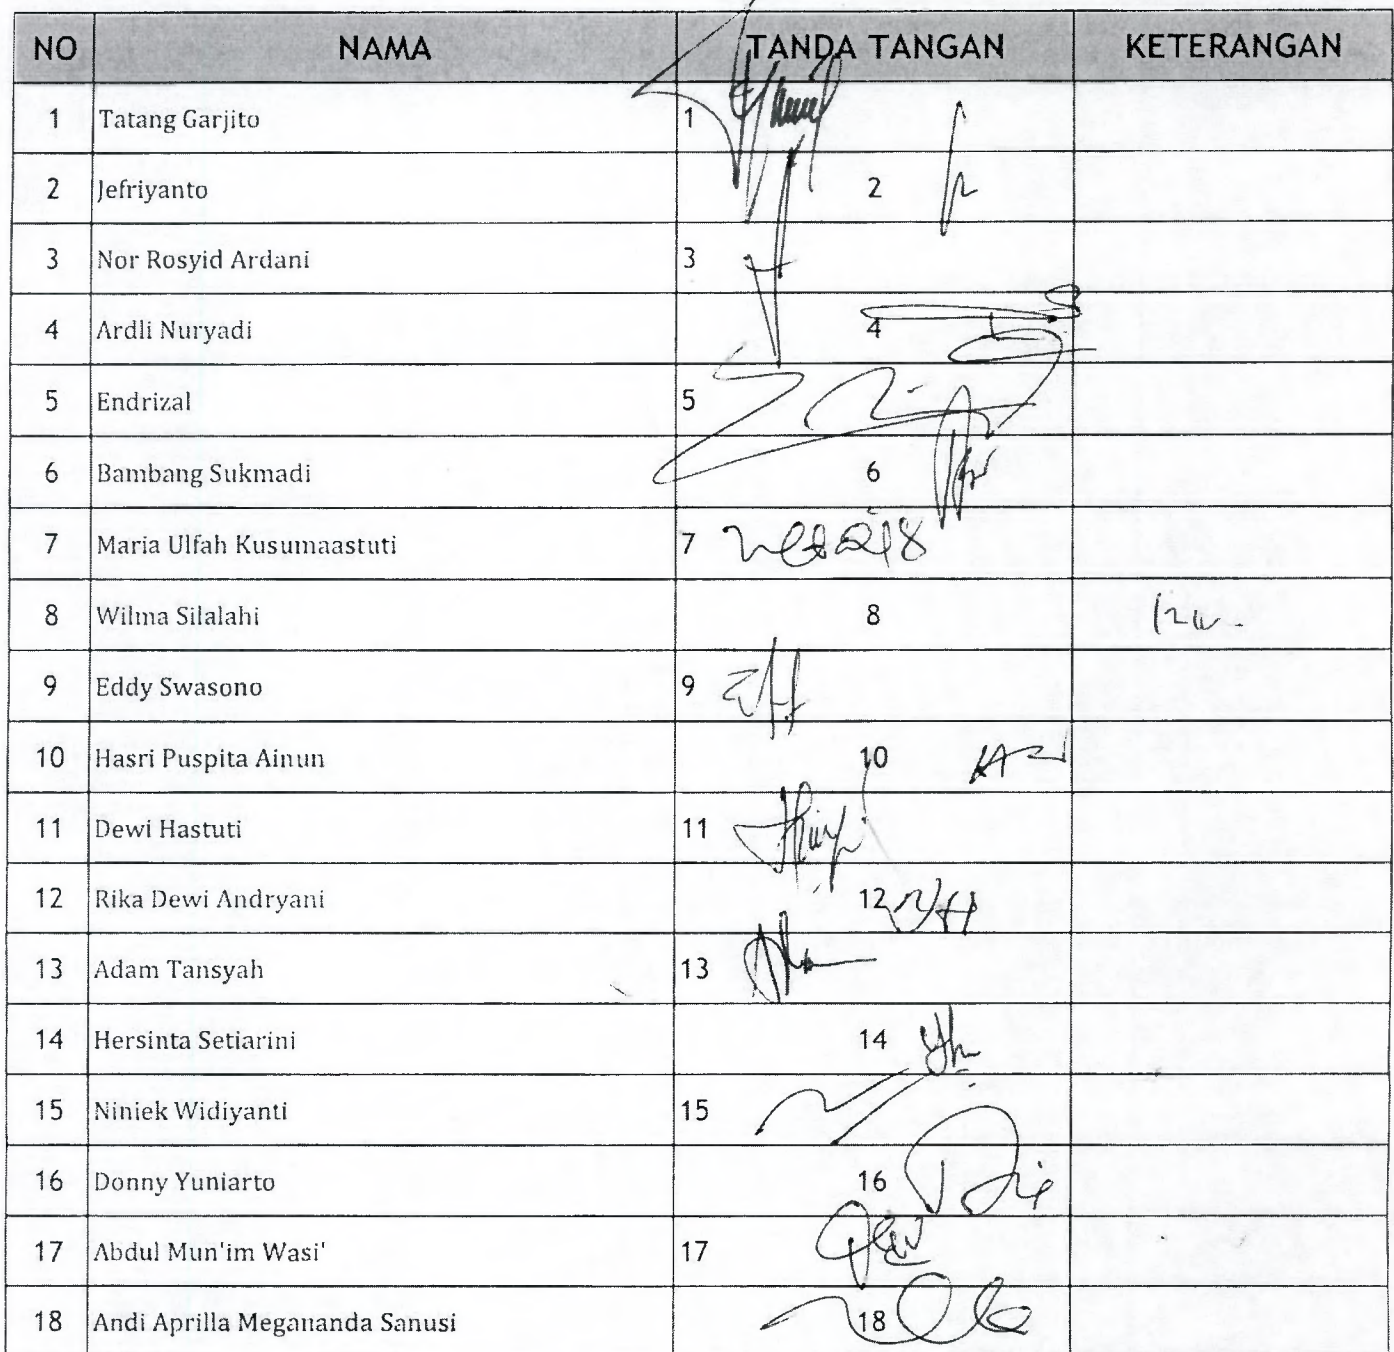 NO NAMA TANDA TANGAN KETERANGAN
1 Tatang Garjito 1
2 Jefriyanto 2
3 Nor Rosyid Ardani 3
4 Ardli Nuryadi 4
5 Endrizal 5
6 Bambang Sukmadi 6
7 Maria Ulfah Kusumaastuti 7
8 Wilma Silalahi 8
9 Eddy Swasono 9
10 Hasri Puspita Ainun 10
11 Dewi Hastuti 11
12 Rika Dewi Andryani 12
13 Adam Tansyah 13
14 Hersinta Setiarini 14
15 Niniek Widiyanti 15
16 Donny Yuniarto 16
17 Abdul Mun'im Wasi' 17
18 Andi Aprilla Megananda Sanusi 18